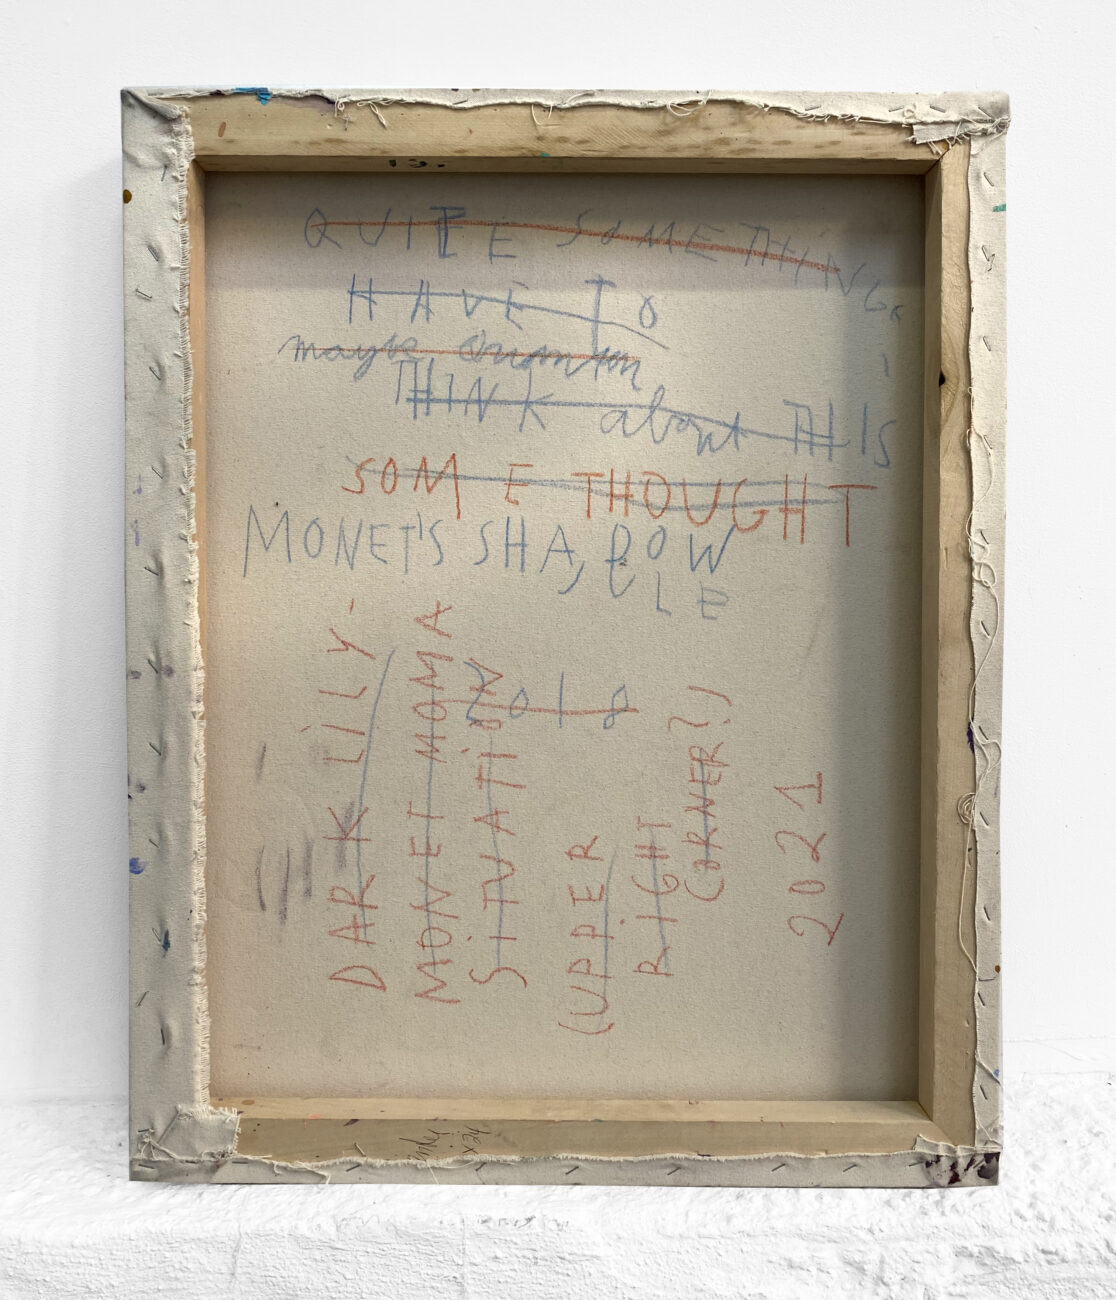 QUITE SOMETHING
I
HAVE TO
maybe
THINK about THIS
SOME THOUGHT
MONET'S SHADOW
LE
2018
DARK LILY-
MONET MOMA
SITUATION
(UPPER
RIGHT
CORNER?)
2021